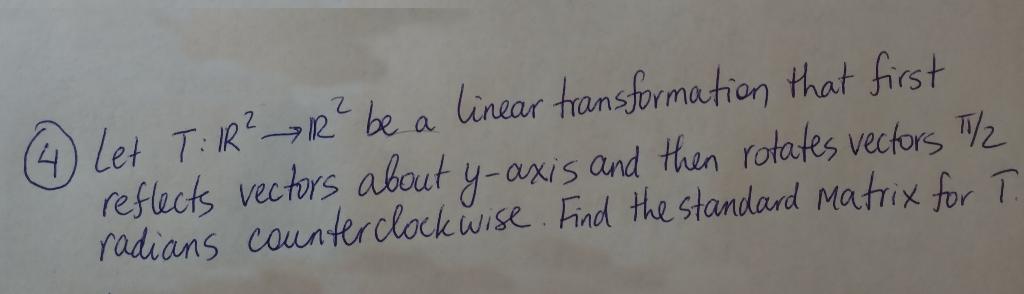 ④ Let T: ℝ² → ℝ² be a linear transformation that first
reflects vectors about y-axis and then rotates vectors π/2
radians counterclockwise. Find the standard matrix for T.